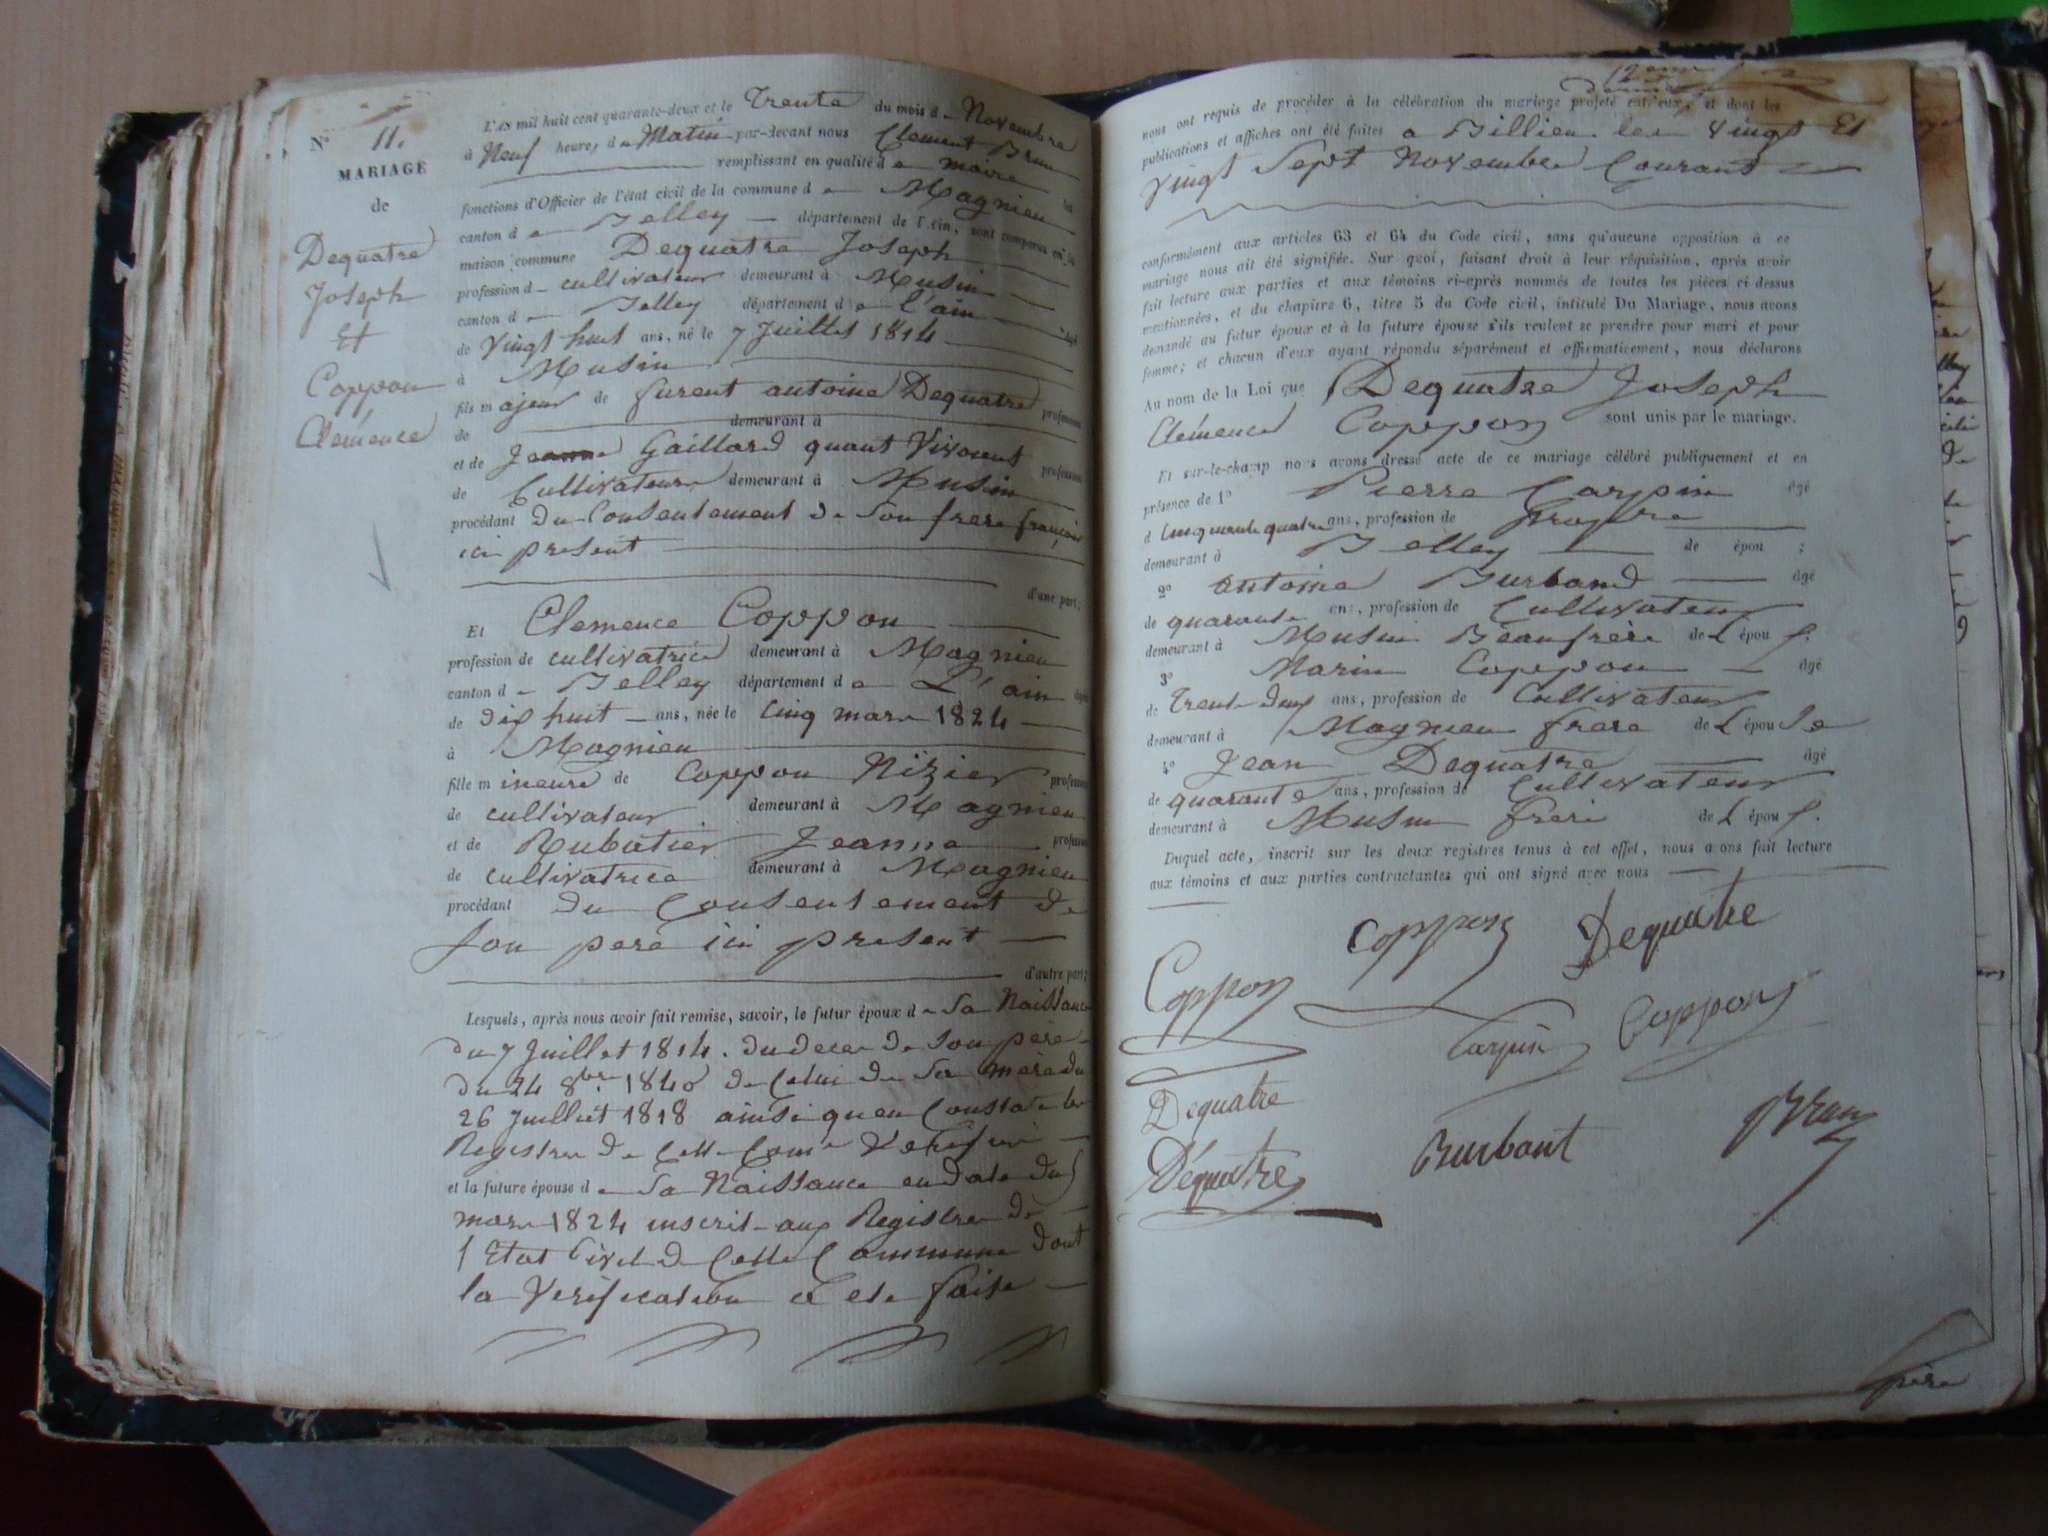 N° 11.
MARIAGE
de
Dequatre
Joseph
Et
Coppon
Clémence
L'AN mil huit cent quarante-deux et le Trente du mois d Novembre
à Neuf heures du Matin par-devant nous Clement Brun
remplissant en qualité de maire les
fonctions d'Officier de l'état civil de la commune de Magnieu
canton de Belley département de l'Ain, sont comparus en la
maison commune Dequatre Joseph
profession d cultivateur demeurant à Musin
canton de Belley département de l'ain âgé
de vingt huit ans, né le 7 Juillet 1814
à Musin
fils majeur de furent antoine Dequatre profession
de demeurant à
et de Jeanne Gaillard quant Vivoient profession
de Cultivateurs demeurant à Musin
procédant du Consentement de Son frere françois
ici present
d'une part;
Et Clemence Coppon
profession de cultivatrice demeurant à Magnieu
canton de Belley département de L'ain âgée
de dix huit ans, née le Cinq mars 1824
à Magnieu
fille mineure de Coppon Nizier profession
de cultivateur demeurant à Magnieu
et de Rubatier Jeanne profession
de cultivatrice demeurant à Magnieu
procédant du Consentement de
Son pere ici present
d'autre part;
Lesquels, après nous avoir fait remise, savoir, le futur époux de Sa Naissance
du 7 Juillet 1814. du deces de Son pere
du 24 8bre 1840 de Celui de Sa mere du
26 Juillet 1818 ainsi quen Constate les
Registres de Cette Comne
et la future épouse de Sa Naissance en date du 5
mars 1824 inscrit aux Registres de
l Etat Civil de Cette Commune dont
la Verification a ete faite
nous ont requis de procéder à la célébration du mariage projeté entr'eux, et dont les
publications et affiches ont été faites a Billieu les Vingt Et
Vingt Sept Novembre Courant
conformément aux articles 63 et 64 du Code civil, sans qu'aucune opposition à ce
mariage nous ait été signifiée. Sur quoi, faisant droit à leur réquisition, après avoir
fait lecture aux parties et aux témoins ci-après nommés de toutes les pièces ci-dessus
mentionnées, et du chapitre 6, titre 5 du Code civil, intitulé Du Mariage, nous avons
demandé au futur époux et à la future épouse s'ils veulent se prendre pour mari et pour
femme; et chacun d'eux ayant répondu séparément et affirmativement, nous déclarons
Au nom de la Loi que Dequatre Joseph
Clémence Coppon sont unis par le mariage.
Et sur-le-champ nous avons dressé acte de ce mariage célébré publiquement et en
présence de 1° Pierre Carpin âgé
d Cinquante quatre ans, profession de propre
demeurant à Belley de épou ;
2° antoine Burband âgé
de quarante ans, profession de Cultivateur
demeurant à Musin Beaufrère de L épou x.
3° Marin Coppon âgé
de Trente deux ans, profession de Cultivateur
demeurant à Magnieu frere de L épou se
4° Jean Dequatre âgé
de quarante ans, profession de Cultivateur
demeurant à Musin frere de L épou x.
Duquel acte, inscrit sur les deux registres tenus à cet effet, nous avons fait lecture
aux témoins et aux parties contractantes qui ont signé avec nous
Coppon Dequatre
Coppon
Carpin Coppon
Dequatre
Dequatre Burbant Brun